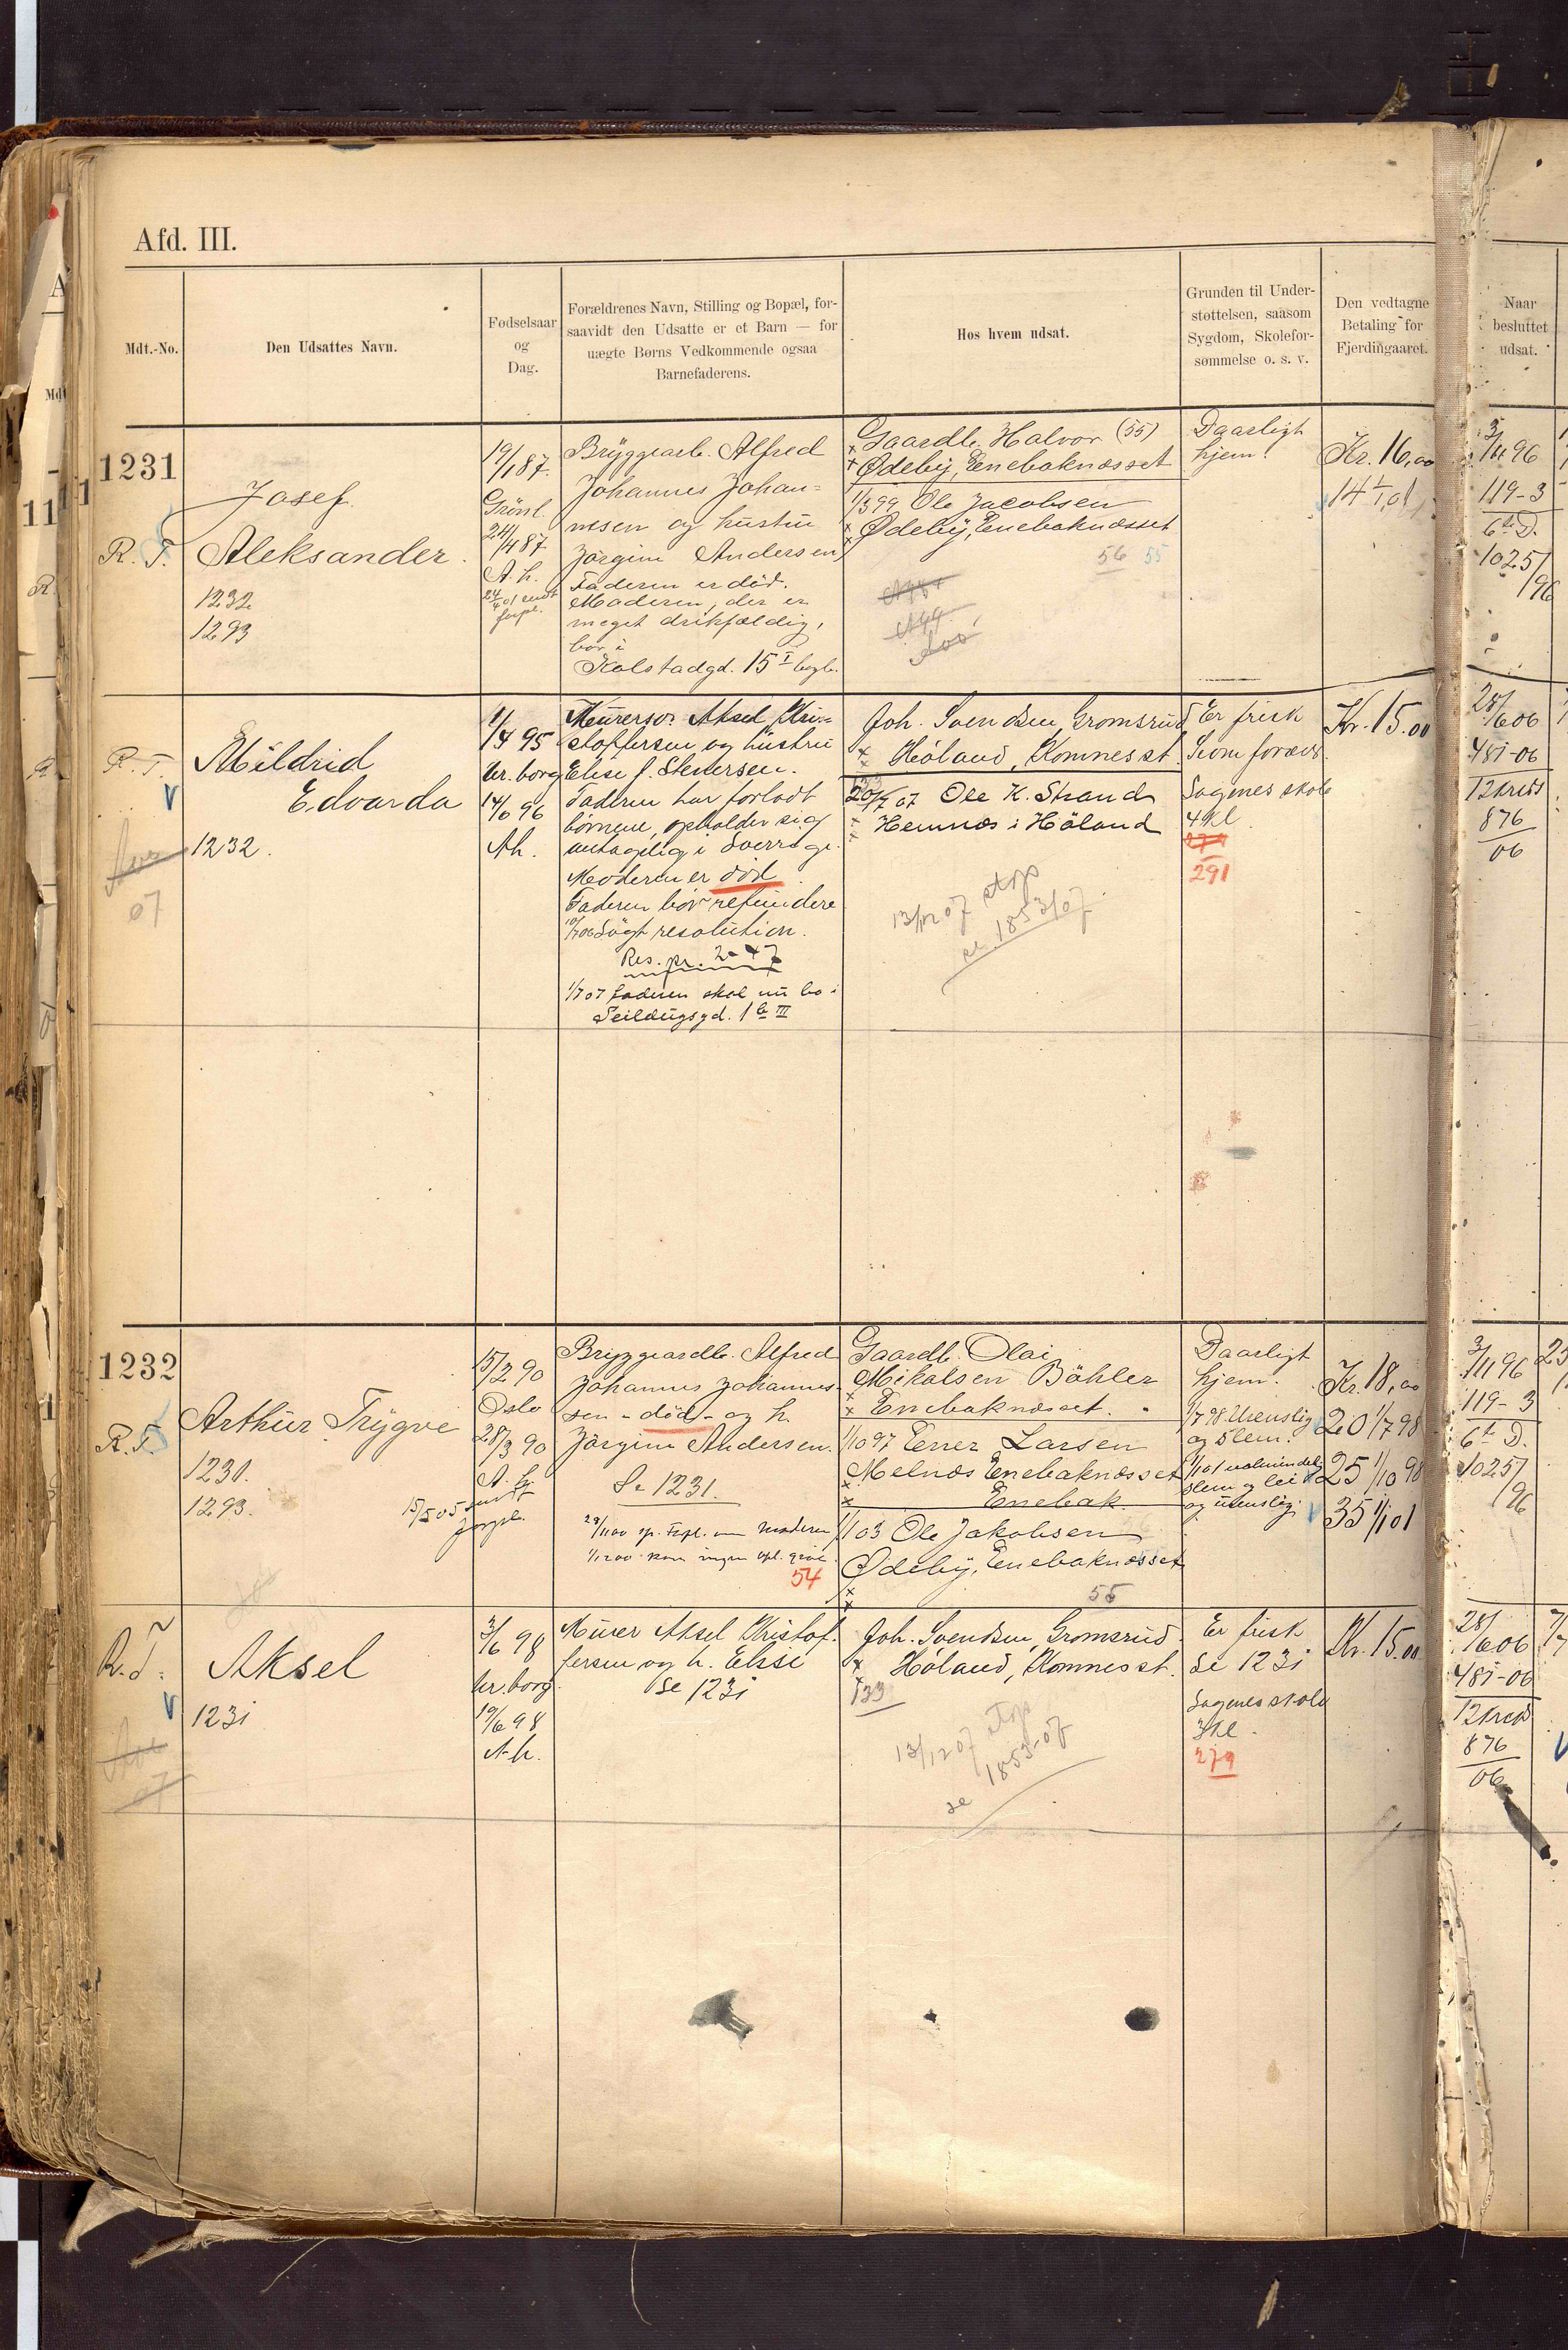 Afd. III.
Mdt.-No.
Den Udsattes Navn.
Fødselsaar
og
Dag.
Forældrenes Navn, Stilling og Bopæl, for-
saavidt den Udsatte er et Barn — for
uægte Børns Vedkommende ogsaa
Barnefaderens.
Hos hvem udsat.
Grunden til Under-
støttelsen, saasom
Sygdom, Skolefor-
sømmelse o. s. v.
Den vedtagne
Betaling for
Fjerdingaaret.
Naar
besluttet
udsat.
1231
R. T.
Josef
Aleksander.
1232
1293
19/1 87.
Grønl.
24/4 87
A. h.
Bryggearb. Alfred
Johannes Johan=
nesen og hustru
Jørgine Andersen,
Faderen er død.
Moderen, der er
meget drikfældig,
bor i
Kolstadgd. 15 I bagb.
Gaardb. Halvor (55)
Ødeby, Enebaknæsset
1/3 99 Ole Jacobsen
Ødeby, Enebaknæsset
56 55
Daarligt
hjem.
Kr. 16,00
14 1/1 01
3/11 96
119-3
6te D.
1025/96
R. T.
V
07
Mildrid
Edvarda
1232.
1/4 95
Ur. borg
14/6 96
Ah.
Murersv. Aksel Kri=
stoffersen og hustru
Elise f. Stenersen.
Faderen har forladt
børnene, opholder sig
antagelig i Sverrige.
Moderen er død.
Faderen bør refundere
10/7 06 Søgt resolution.
Res. pr. 2-47
1/7 07 faderen skal nu bo i
Seildugsgd. 1 b III
Joh. Svendsen, Gromsrud
Høland, Komnes st.
20/7 07 Ole K. Strand
Hemnæs i Høland
13/12 07 stop
se 1853/07.
Er frisk
Sagenes skole
4 kl.
291
Kr. 15.00
28/6 06
481-06
12 kreds
876/06
1232
R. T.
Arthur Trygve
1231.
1293.
15/2 90
Oslo
28/3 90
A. h.
15/5 05 endt
forpl.
Bryggearb. Alfred
Johannes Johannes-
sen - død - og h.
Jørgine Andersen.
Se 1231.
54
Gaardb. Olai
Mikalsen Bøhler
Enebaknæsset.
1/10 97 Enner Larsen
Melnæs Enebaknæsset
Enebak.
1/1 03 Ole Jakobsen
Ødeby, Enebaknæsset
55
Daarligt
hjem.
1/7 98 Urenslig
og slem.
1/1 01 ualmindelig
slem og lei
og urenslig.
Kr. 18,00
20 1/7 98
25 1/10 98
35 1/1 01
3/11 96
119-3
6te D.
1025/96
R. T.
V
07
Aksel
1231
3/6 98
Ur. borg.
19/6 98
A. h.
Murer Aksel Kristof-
fersen og h. Elise
Se 1231
Joh. Svendsen, Gromsrud.
Høland, Komnes st.
133
13/12 07 stop
se 1853-07
Er frisk
Se 1231
Sagenes skole
3 kl.
279
Kr. 15.00
28/6 06
481-06
12 kreds
876
06